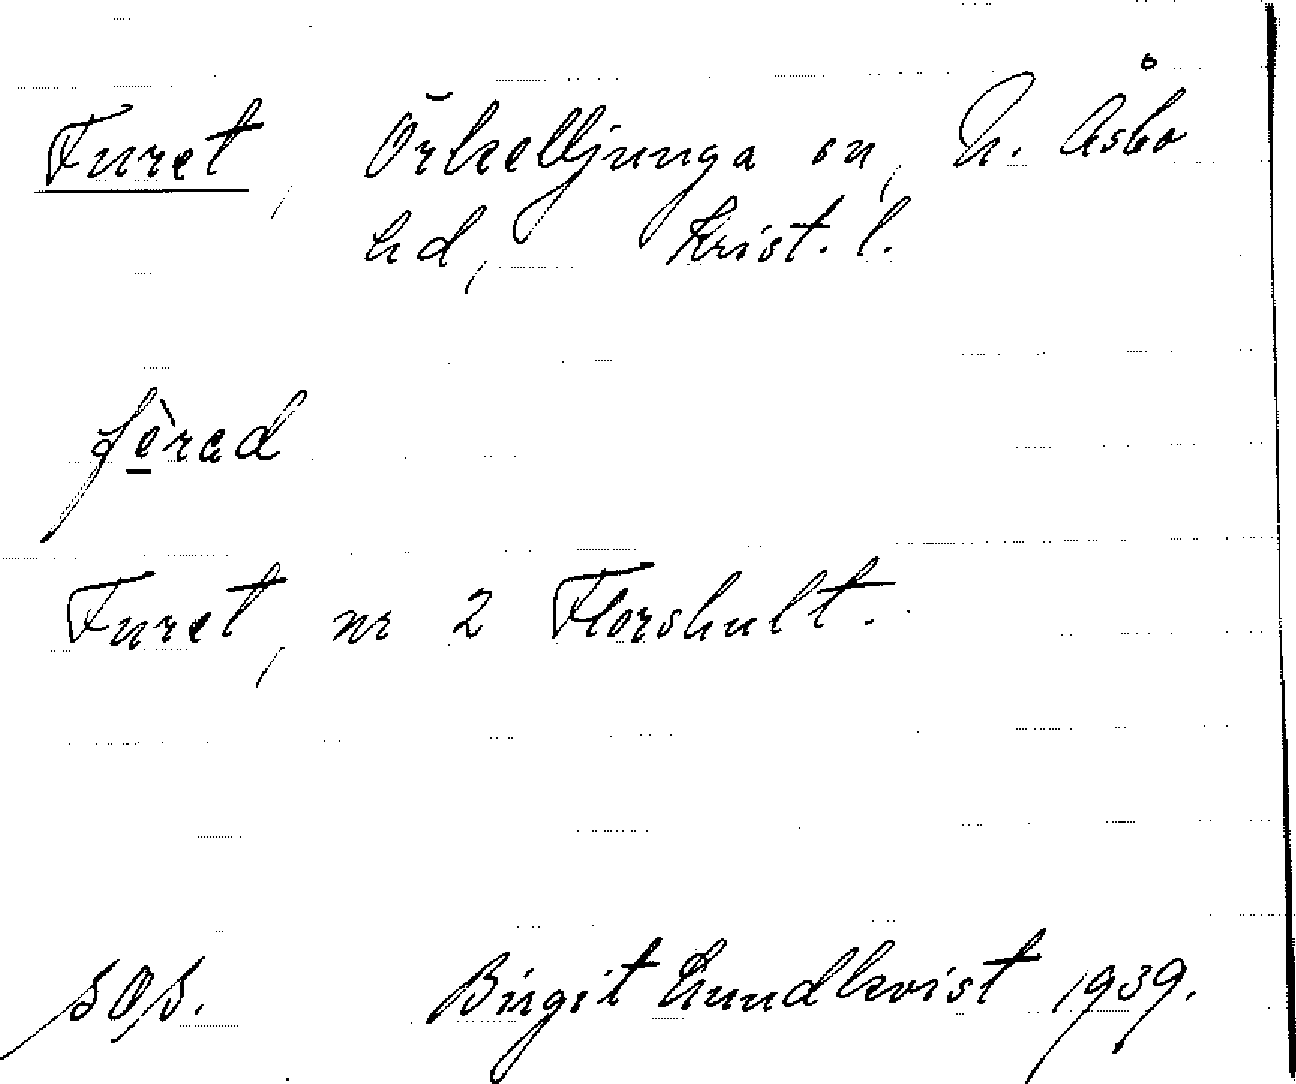 Furet, Örkelljunga sn, N. Åsbo
hd, Krist. l.
fèrad
Furet, nr 2 Florshult.
SOS. Birgit Lundkvist 1939.